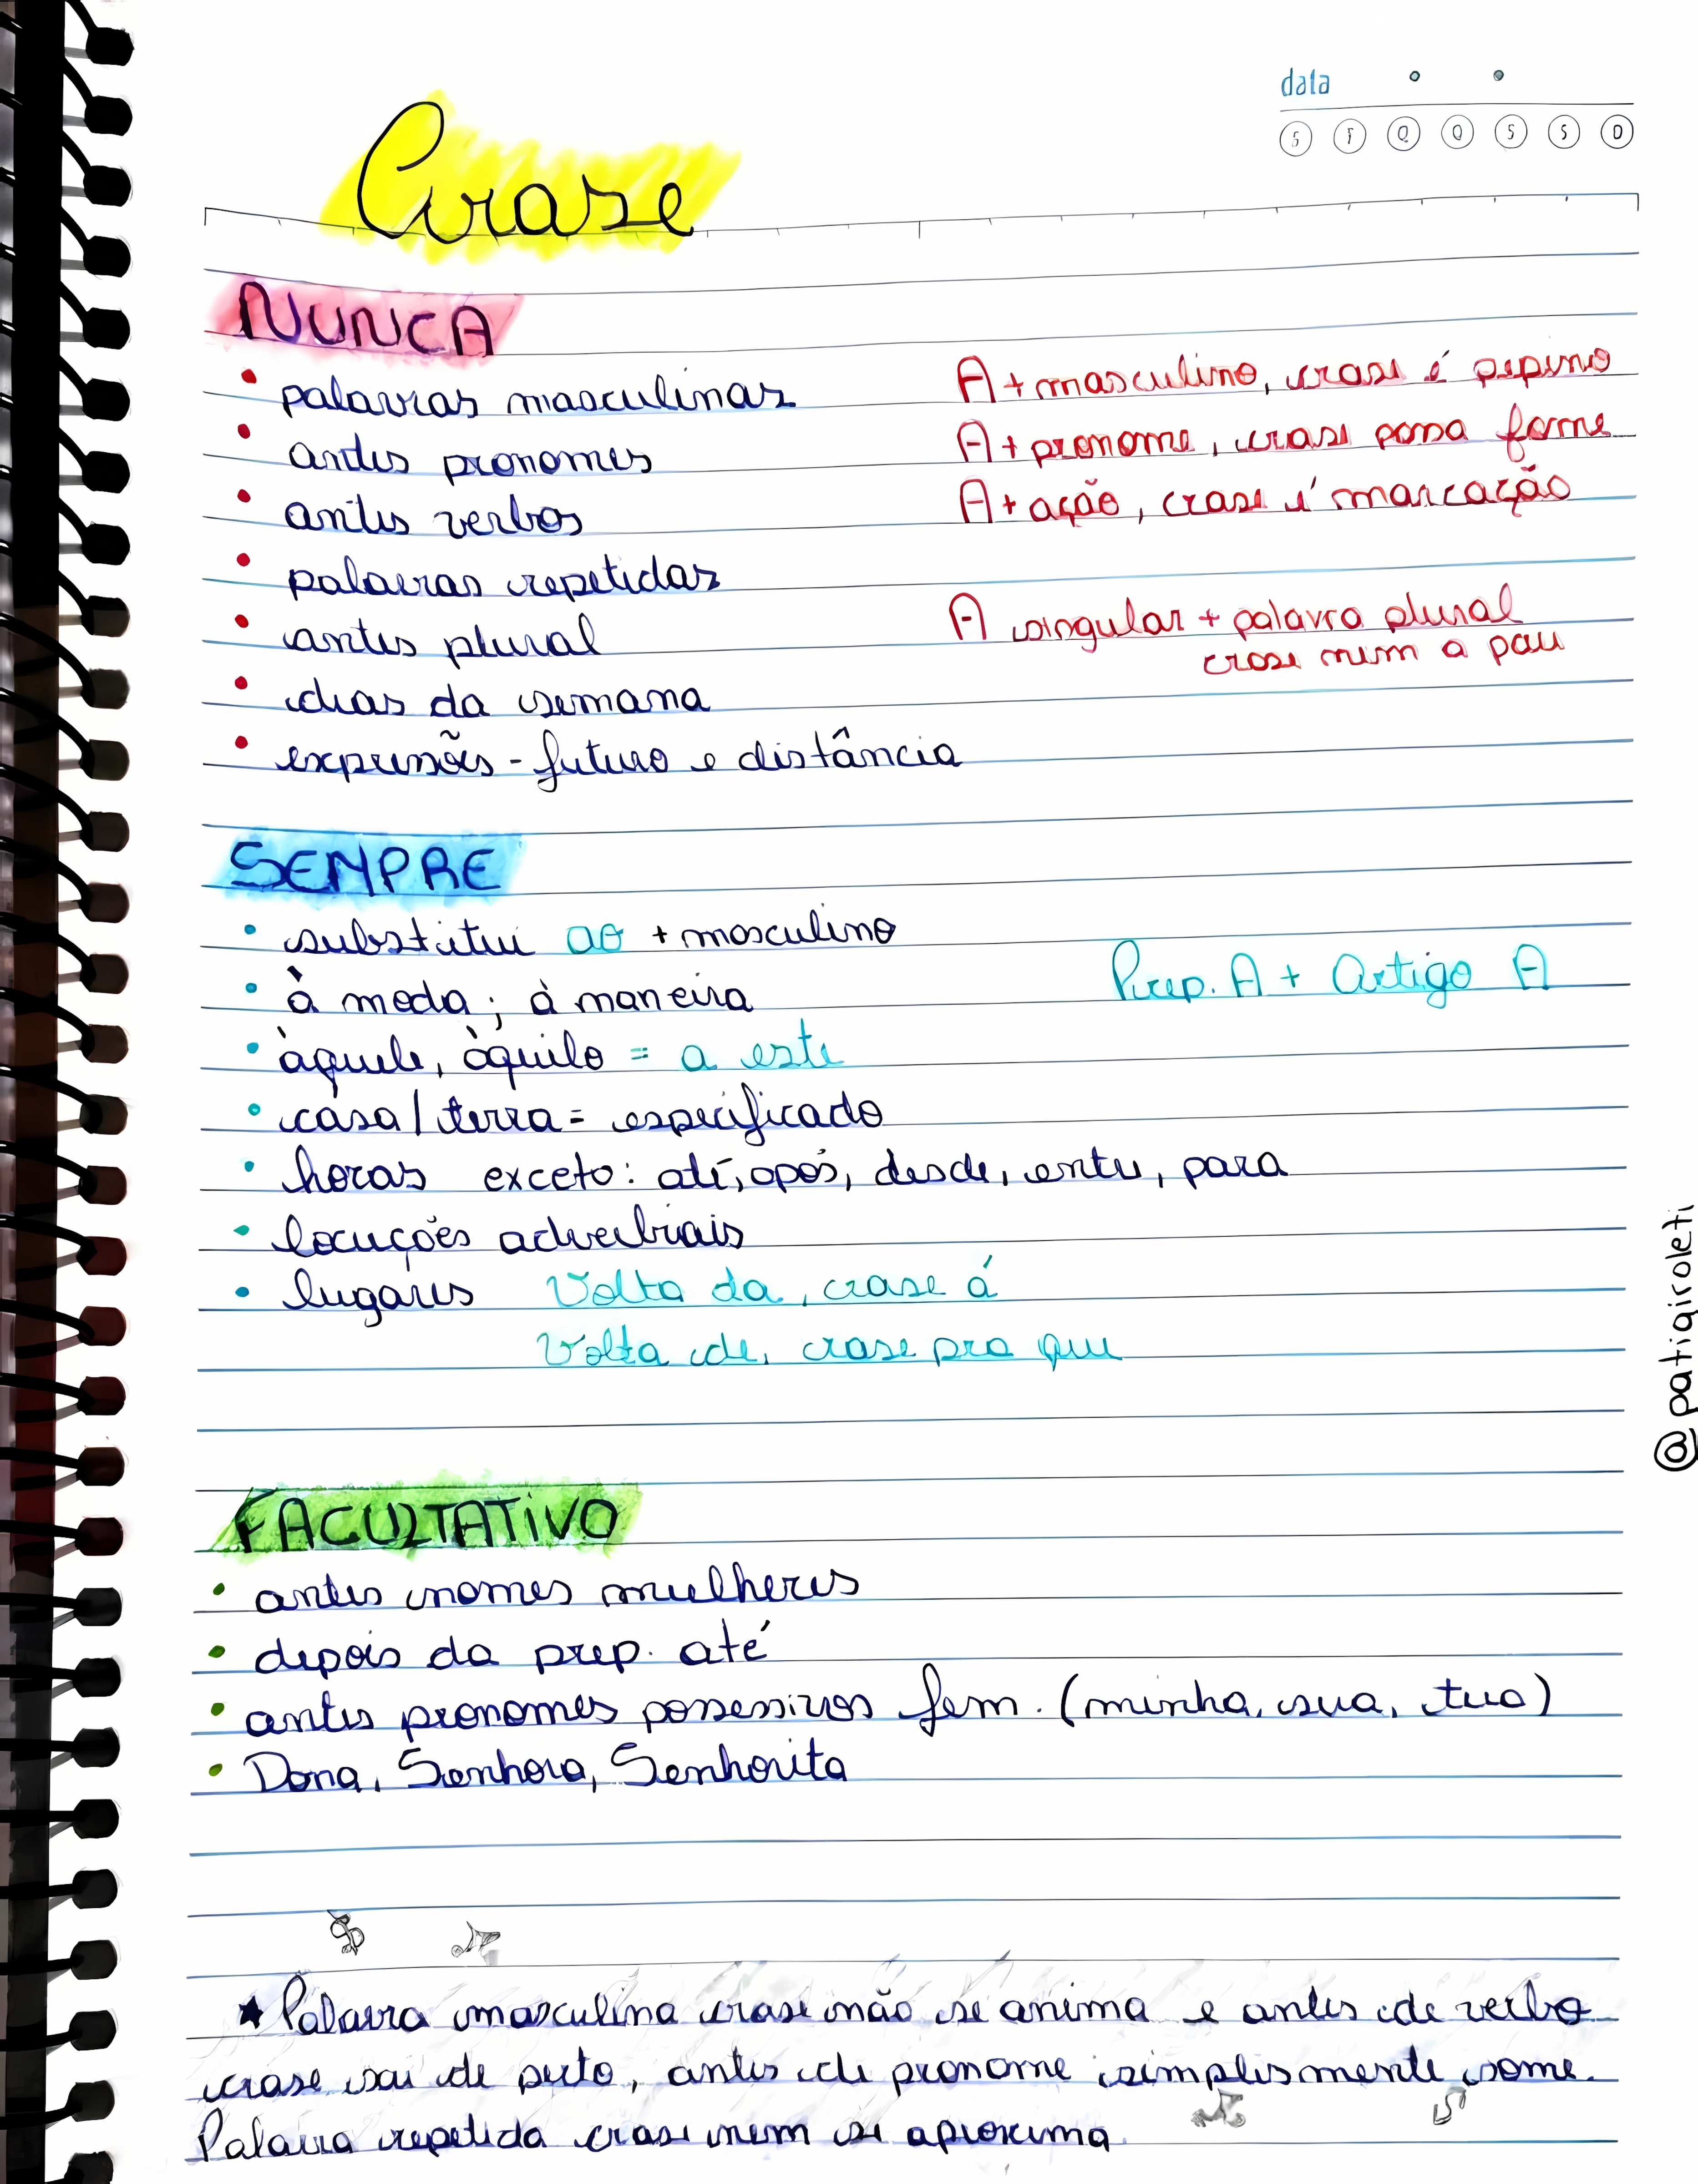 data
S T Q Q S S D
Crase
NUNCA
• palavras masculinas A + masculino, crase é pepino
• antes pronomes A + pronome, crase passa fome
• antes verbos A + ação, crase é marcação
• palavras repetidas
• antes plural A singular + palavra plural
crase nem a pau
• dias da semana
• expressões - futuro e distância
SEMPRE
• substitui ao + masculino
• à moda; à maneira Prep. A + Artigo A
• àquele, àquilo = a este
• casa/terra = especificado
• horas exceto: até, após, desde, entre, para
• locuções adverbiais
• lugares Volta da, crase á
Volta de, crase pra que
@patigiroleti
FACULTATIVO
• antes nomes mulheres
• depois da prep. até
• antes pronomes possessivos fem. (minha, sua, tua)
• Dona, Senhora, Senhorita
★ Palavra masculina crase não se anima e antes de verbo
crase sai de perto, antes de pronome simplesmente some.
Palavra repetida crase nem se aproxima